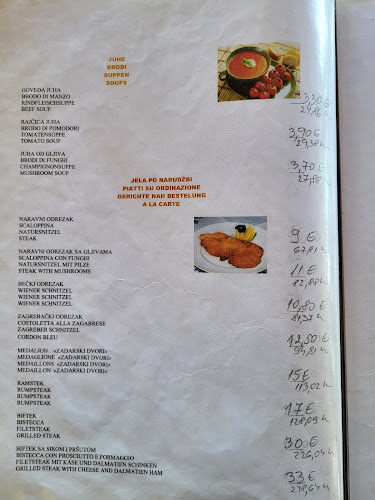 JUHE
BRODI
SUPPEN
SOUPS
GOVEĐA JUHA
BRODO DI MANZO
RINDFLEISCHSUPPE
BEEF SOUP
3,30 €
24,86 k
RAJČICA JUHA
BRODO DI POMODORI
TOMATENSUPPE
TOMATO SOUP
3,90 €
29,38 k
JUHA OD GLJIVA
BRODI DI FUNGHI
CHAMPIGNONSUPPE
MUSHROOM SOUP
3,70 €
27,88 k
JELA PO NARUDŽBI
PIATTI SU ORDINAZIONE
GERICHTE NAH BESTELUNG
A LA CARTE
NARAVNI ODREZAK
SCALOPPINA
NATURSNITZEL
STEAK
9 €
67,81 k
NARAVNI ODREZAK SA GLJIVAMA
SCALOPPINA CON FUNGHI
NATURSNITZEL MIT PILZE
STEAK WITH MUSHROOMS
11 €
82,88 k
BEČKI ODREZAK
WIENER SCHNITZEL
WIENER SCHNITZEL
WIENER SCHNITZEL
10,80 €
81,37 k
ZAGREBAČKI ODREZAK
COSTOLETTA ALLA ZAGABRESE
ZAGREBER SCHNITZEL
CORDON BLEU
12,50 €
94,81 k
MEDALJON «ZADARSKI DVORI»
MEDAGLIONE «ZADARSKI DVORI»
MEDAILLONS «ZADARSKI DVORI»
MEDAILLON «ZADARSKI DVORI»
15 €
113,02 k
RAMSTEK
RUMPSTEAK
RUMPSTEAK
RUMPSTEAK
17 €
128,09 k
BIFTEK
BISTECCA
FILETSTEAK
GRILLED STEAK
30 €
226,04 k
BIFTEK SA SIROM I PRŠUTOM
BISTECCA CON PROSCIUTTO E FORMAGGIO
FILETSTEAK MIT KÄSE UND DALMATIEN SCHINKEN
GRILLED STEAK WITH CHEESE AND DALMATIEN HAM
33 €
248,64 k